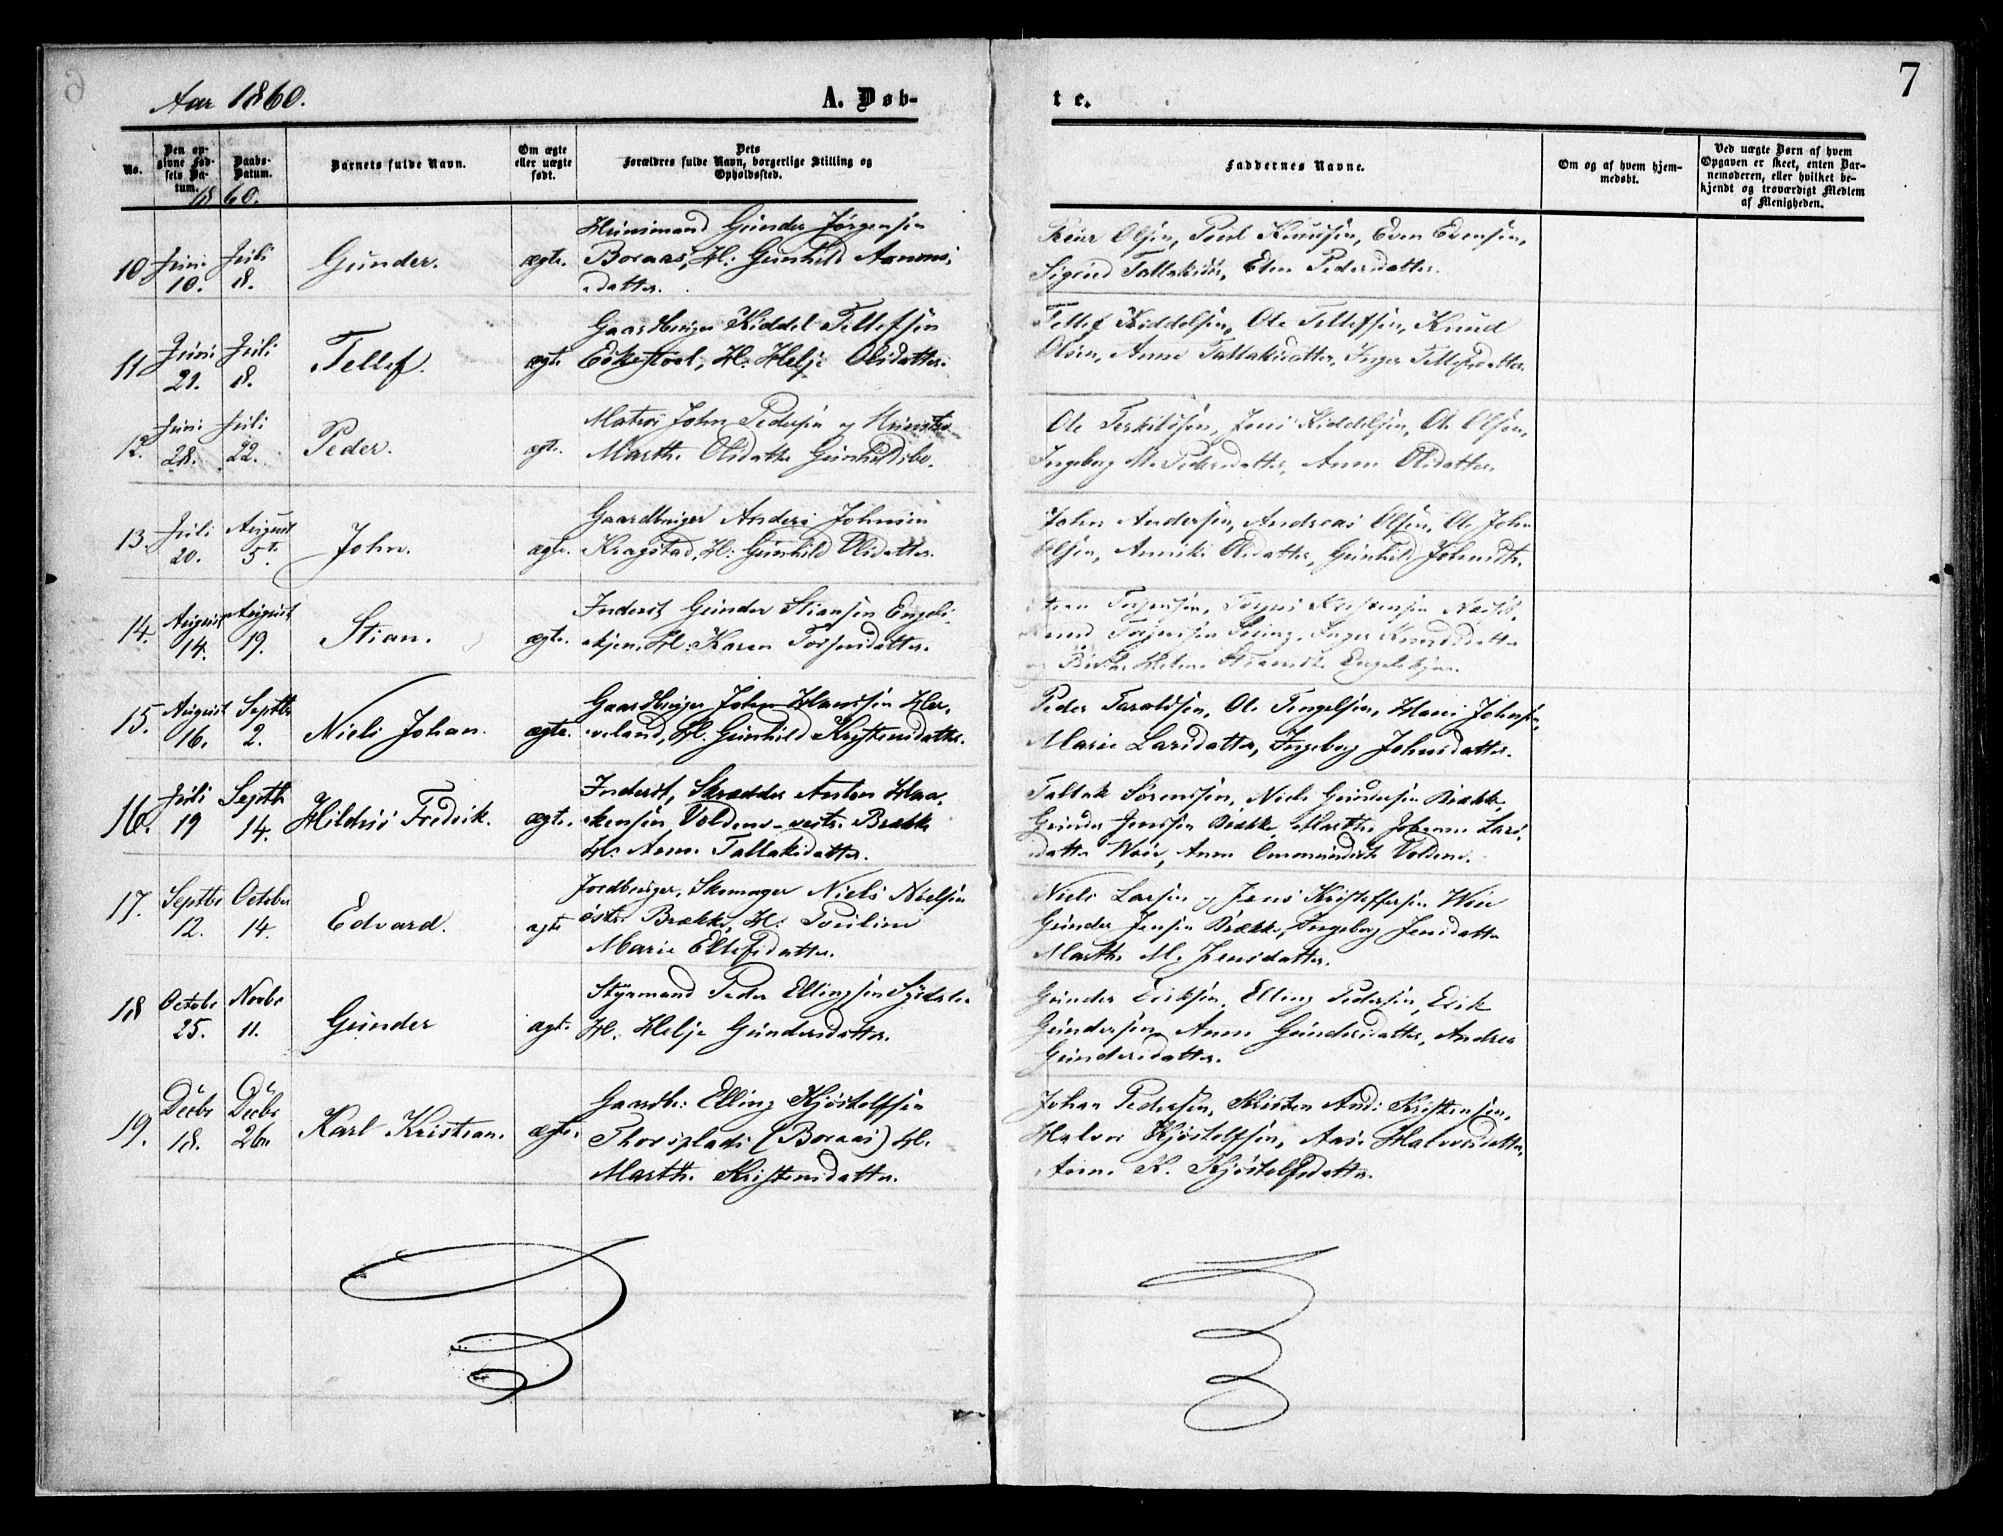 6
Aar 1860.
A. Døb-
te.
7
No.
Den op-
givne Fød-
sels Da-
tum.
Daabs-
Datum.
Barnets fulde Navn.
Om ægte
eller uægte
født.
Dets
Forældres fulde Navn, borgerlige Stilling og
Opholdssted.
Faddernes Navne.
Om og af hvem hjem-
medøbt.
Ved uægte Børn af hvem
Opgaven er skeet, enten Bar-
nemoderen, eller hvilket be-
kjendt og troværdigt Medlem
af Menigheden.
1860.
10 Juni 10. Juli 8. Gunder. ægte.
Huusmand Gunder Jørgensen
Boraas, H: Gunhild Aanons,
datter.
Olsen, Poul Knudsen, Even Evensen,
Sigrid Tallaksdr, Elen Pedersdatter.
11 Juni 21. Juli 8. Tellef. ægte.
Gaardbruger Kiddel Tellefsen
Eikestøl, H. Helje Olsdatter.
Tellef Kiddelsen, Ole Tellefsen, Knud
Olsen, Anne Tallaksdatter, Inger Tellefsdatter.
12. Juni 28. Juli 22. Peder. ægte.
Matros John Pedersen og Huustro
Marthe Olsdatter Gunhildsbo.
Ole Terkildsen, Jens Kiddelsen, Ole Olsen,
Ingeborg M. Pedersdatter, Anne Olsdatter.
13. Juli 20. August 5te. John. ægte.
Gaardbruger Anders Johnsen
Kragstad, H: Gunhild Olsdatter.
John Andersen, Andreas Olsen, Ole John
Olsen, Annike Olsdatter, Gunhild Johnsdtr.
14. August 14. August 19. Stian. ægte.
Inderst Gunder Stiansen Engels,
kjen, H: Karen Torjusdatter.
Torjussen, Torjus Kristensen
Torjussen Inger Knudsdatter
Helene Engelskjen.
15. August 16. Septbr 2. Niels Johan. ægte.
Gaardbruger John Hanssen Her,
veland, H. Gunhild Kristensdatter.
Peder Taraldsen, Ole Tengelsen, Hans Johnsen,
Marie Larsdatter, Ingeborg Johnsdatter.
16. Juli 19 Septbr 14. Hildius Fredrik. ægte.
Inderst, Skrædder Anton Haa,
kensen Voldens-vestre Brække
H. Anne Tallaksdatter.
Tallak Sørenssen, Niels Gundersen Brække,
Gunder Jenssen Brække, Marthe Johanne Lars
datter Woie, Anne Ommundsdtr Voldene.
17. Septbr 12. October 14. Edvard. ægte
Jordbruger, Skomager Niels Nielsen
østre Brække, H. Pouline
Marie Ellefsdatter.
Niels Larsen og Jens Kristoffersen Woie
Gunder Jensen Brække, Ingeborg Jensdatter
Marthe M. Jensdatter.
18 Octobr 25. Novbr 11. Gunder ægte.
Styrmand Peder Ellingsen
H. Helje Gundersdatter.
Gunder Eriksen, Elling Pedersen, Erik
Gundersen Anne Gundersdatter, Andrea
Gundersdatter.
19. Decbr 18. Decbr 26. Karl Kristian. ægte.
Gaardbr: Elling Kjøstolfsen
Thorsplads (Boraas) H.
Marthe Kristensdatter.
Johan Pedersen, Kristen Ands Kristensen,
Halvor Kjøstolfsen, Aase Halvorsdatter,
Anne K. Kjøstolfsdatter.